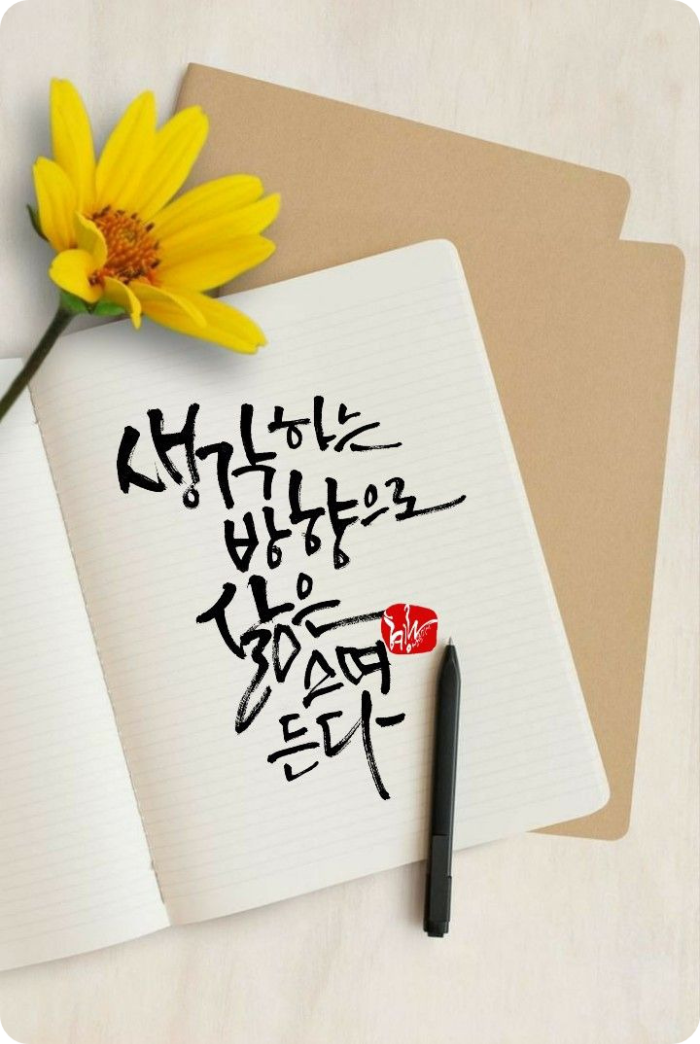 생각하는
방향으로
삶은
스며
든다